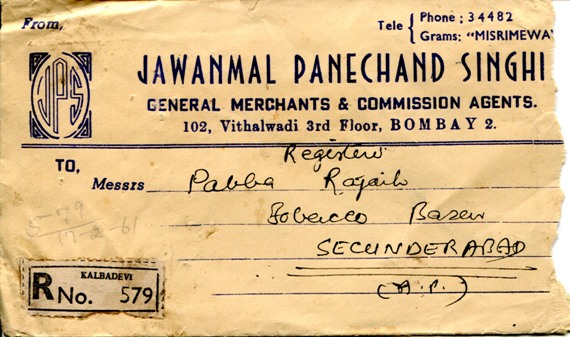 From,
Tele { Phone : 34482
Grams: "MISRIMEWA
JPS
JAWANMAL PANECHAND SINGHI
GENERAL MERCHANTS & COMMISSION AGENTS.
102, Vithalwadi 3rd Floor, BOMBAY 2.
TO,
Messrs Pabba
SECUNDERABAD
(A.P.)
17-2-61
KALBADEVI
R No. 579